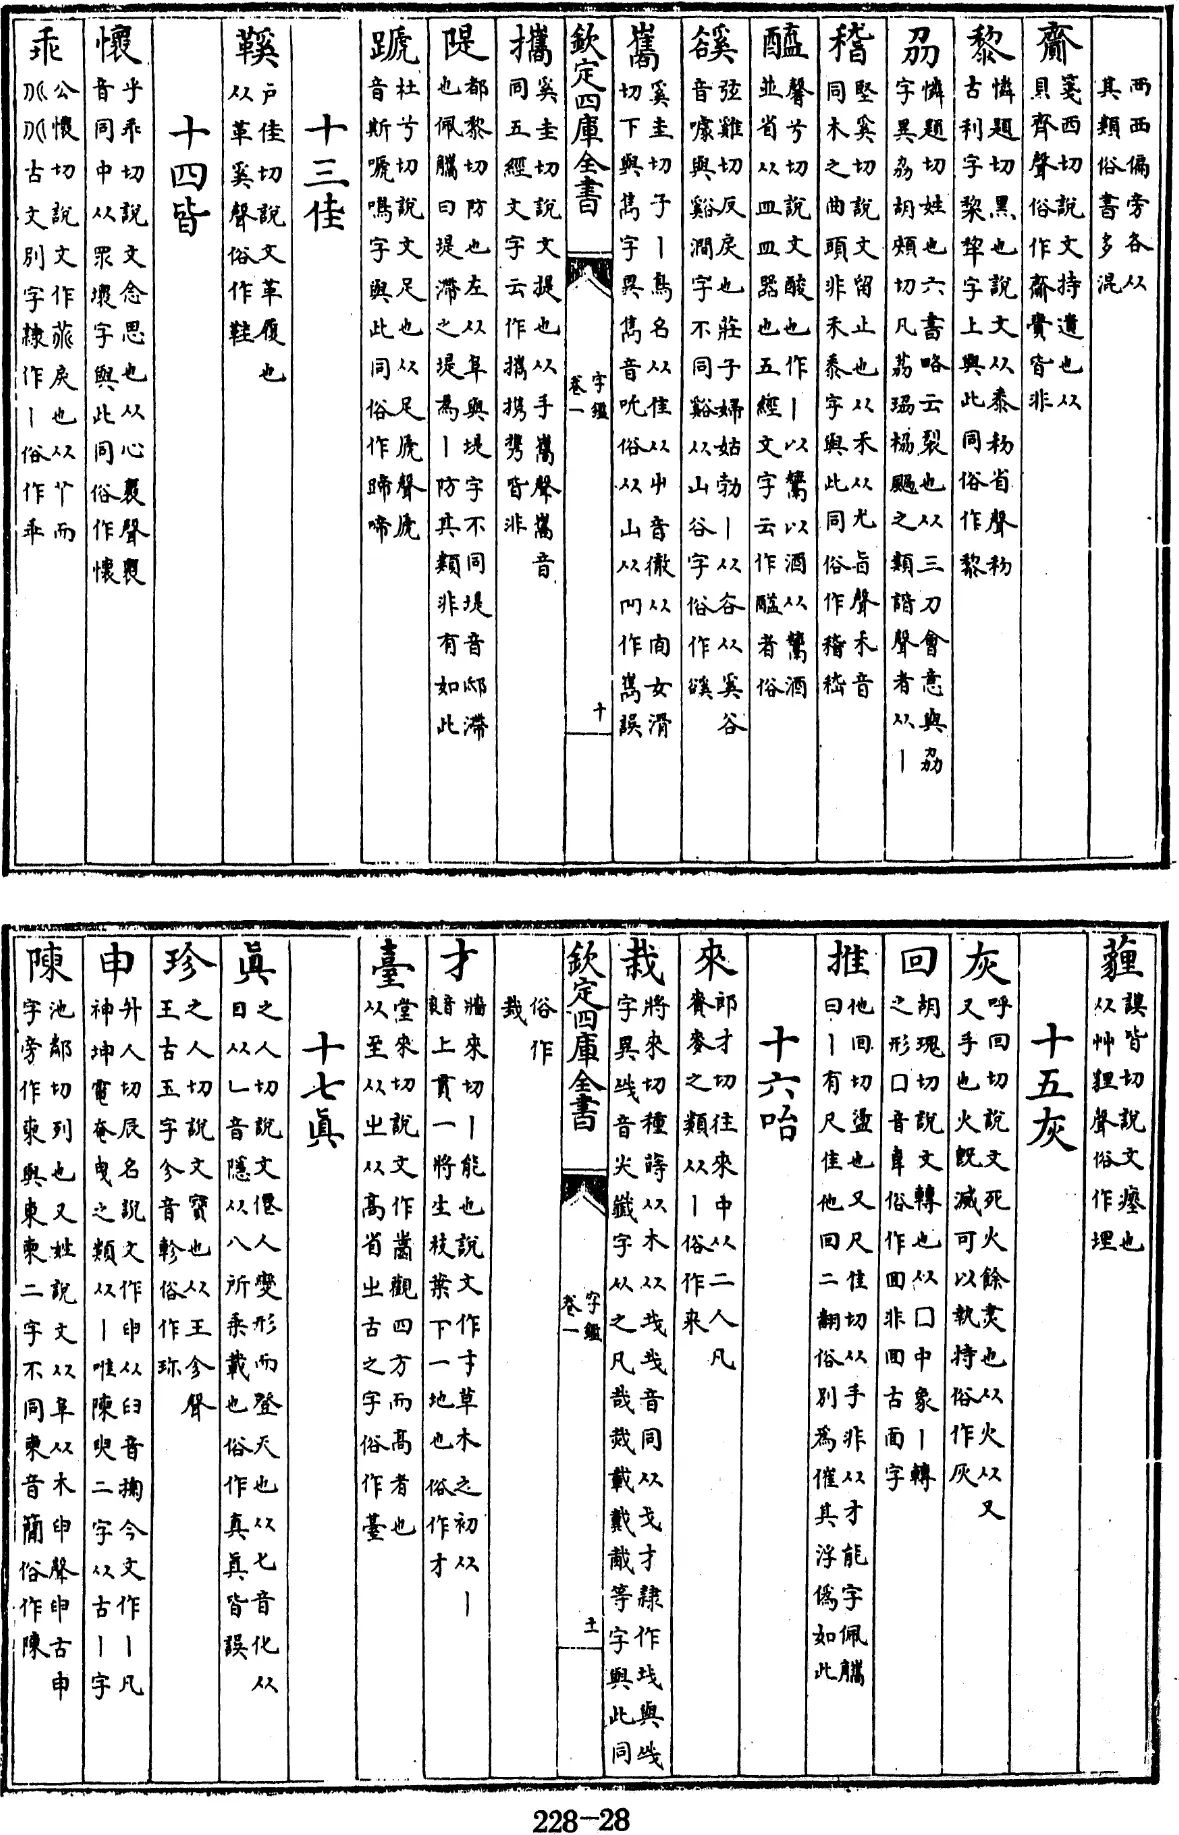 西西偏旁各从
其類俗書多混
齎箋西切說文持遺也从
貝齊聲俗作齋賫皆非
黎憐題切黑也說文从黍𥝢省聲𥝢
古利字棃犂字上與此同俗作黎
刕憐題切姓也六書略云裂也从三刀會意與劦
字異劦胡頰切凡荔珕脇勰之類諧聲者从丨
稽堅奚切說文留止也从禾从尤旨聲禾音
同木之曲頭非禾黍字與此同俗作稽嵇
醯馨兮切說文酸也作丨以鬻以酒从鬻酒
並省从皿皿器也五經文字云作醓者俗
谿弦雞切反戾也莊子婦姑勃丨从谷从奚谷
音噱與谿澗字不同谿从山谷字俗作磎
巂奚圭切子丨鳥名从隹从屮音徹从㕯女滑
切下與雋字異雋音吮俗从山从凹作嶲誤
欽定四庫全書
字鑑
卷一
十
攜奚圭切說文提也从手巂聲巂音
同五經文字云作擕携㩗皆非
隄都黎切防也左从阜與堤字不同堤音邸滯
也佩觿曰堤滯之堤為丨防其類非有如此
蹏杜兮切說文足也从足虒聲虒
音斯嗁鳴字與此同俗作蹄啼
十三佳
鞵戶佳切說文革履也
从革奚聲俗作鞋
十四皆
懷乎乖切說文念思也从心褱聲褱
音同中从眔壞字與此同俗作懐
乖公懷切說文作𠁥戾也从𠁥而
𠔁𠔁古文別字隸作丨俗作乖
薶謨皆切說文瘞也
从艸貍聲俗作埋
十五灰
灰呼回切說文死火餘㶳也从火从又
又手也火旣滅可以執持俗作灰
回胡瑰切說文轉也从口中象丨轉
之形口音韋俗作囬非囬古面字
推他回切盪也又尺隹切从手非从才能字佩觿
曰丨有尺隹他回二翻俗別為催其浮偽如此
十六咍
來郎才切往來中从二人凡
賚麥之類从丨俗作来
栽將來切種蒔从木从𢦏𢦏音同从戈才隸作𢦏與𢦒
字異𢦒音尖籤字从之凡哉裁載戴胾等字與此同
欽定四庫全書
字鑑
卷一
十一
俗作
栽
才將來切丨能也說文作才草木之初从丨
音上貫一將生枝葉下一地也俗作才
臺堂來切說文作臺觀四方而高者也
从至从㞢从高省㞢古之字俗作䑓
十七眞
眞之人切說文僊人變形而登天也从匕音化从
目从乚音隱从八所乘載也俗作真眞皆誤
珍之人切說文寶也从王㐱聲
王古玉字㐱音軫俗作珎
申升人切辰名說文作申从臼音掬今文作丨凡
神坤電奄曳之類从丨唯陳臾二字从古丨字
陳池鄰切列也又姓說文从阜从木申聲申古申
字旁作東與東柬二字不同柬音簡俗作陳
228-28